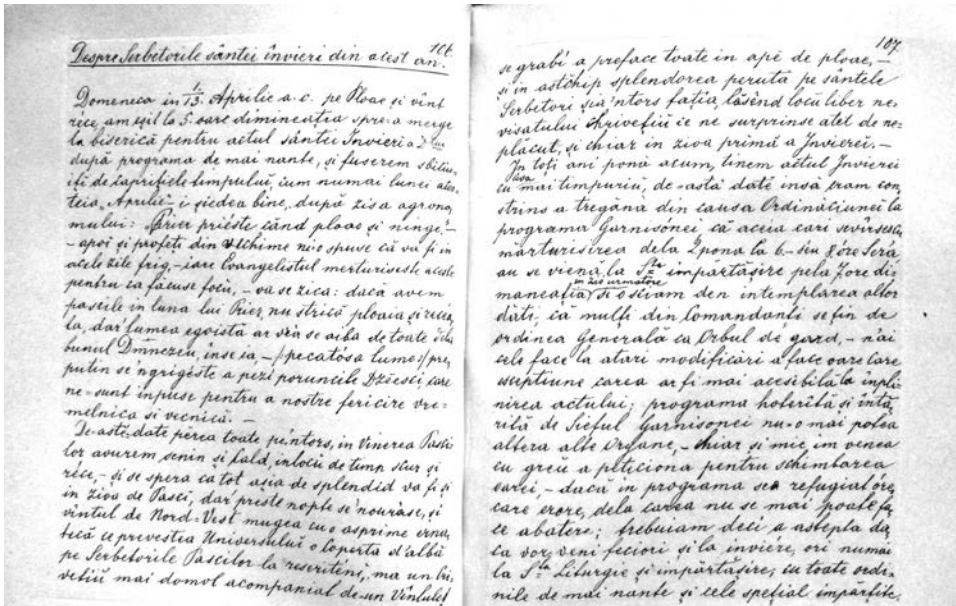 106.
Despre Serbetorile sântei învieri din acest an.
Domeneca in 1/13. Aprilie a.c. pe Ploae și vînt
rice, am eșit la 5. oare dimineatia spre a merge
la biserică pentru actul sântei Invieri a
după programa de mai nante, și fuserem
de capritiele timpului, cum numai lunei
Aprilie i ședea bine, după zisa agrono
mului: Prier prieste când ploae și ninge!
apoi și profeti din vechime ne-o spuse că va fi in
acele zile frig, iare Evangelistul merturiseste
pentru ca făcuse focu, - va se zica: dacă avem
pascile in luna lui Prier, nu strică ploaia și recea
la, dar lumea egoistă ar vrea se aiba de toate
bunul Dumnezeu, inse ia, - /:pecatósa lume:/ pre
putin se 'ngrigeste a pezi poruncile Dzeesci care
ne-sunt inpuse pentru a nostre fericire vre
melnica si vecnică. -
De-aste-date perea toate pe'ntors, in Vinerea Pasci
lor avurem senin și cald, inlocu de timp scur și
réce, - și se spera ca tot așia de splendid va fi și
in zioa de Pasci, dar preste nopte se 'nourase, și
vintul de Nord-Vest mugea cu o asprime erna
tică ce prevestia Universului o Coperta d'albă
pe Serbetorile Pascilor la reseriteni, ma un
vetiu mai domol acompaniat de-un Vîntuleț
107.
se grabi a preface toate in ape de ploae, -
și in astchip splendorea peruta pe sântele
Serbetori șia 'ntors fatia, lăsênd locu liber ne
visatului Chrivețiu ce ne surprinse atet de ne=
plăcut, și chiar in zioa primă a Invierei. -
In toti ani ponă acum, tinem actul Invierei
cu mai timpuriu, de-astă dată insă eram con
strins a tregăna din causa Ordinăciunei la
programa Garnisonei că aceia care sevirsesc
mărturisirea dela 2 pona la 6. - seu 8 óre Seră
au se viena la Sta impartășire pela 7 ore di
maneația in zio urmatóre și osciam den intemplarea altor
dati, că multi din Comandanti se fin de
ordinea Generală ca Orbul de gard, - n'ai
cele face la atari modificări a face oare care
esceptiune carea ar fi mai acesibilă la inpli
nirea actului; programa hoterită și intă
rită de Șieful Garnisonei nu-o mai potea
altera alte Organe, - Chiar și mie im venea
cu greu a peticiona pentru schimbarea
earei, - dacă in programa sea refugiat óre
care eróre, dela carea nu se mai poate fa
ce abatere; trebuiam deci a astepta da
ca vor veni feciori și la inviére, ori numai
la Sta Liturgie și impărtășire; cu toate ordi
nile de mai nante și cele spețial impărtite